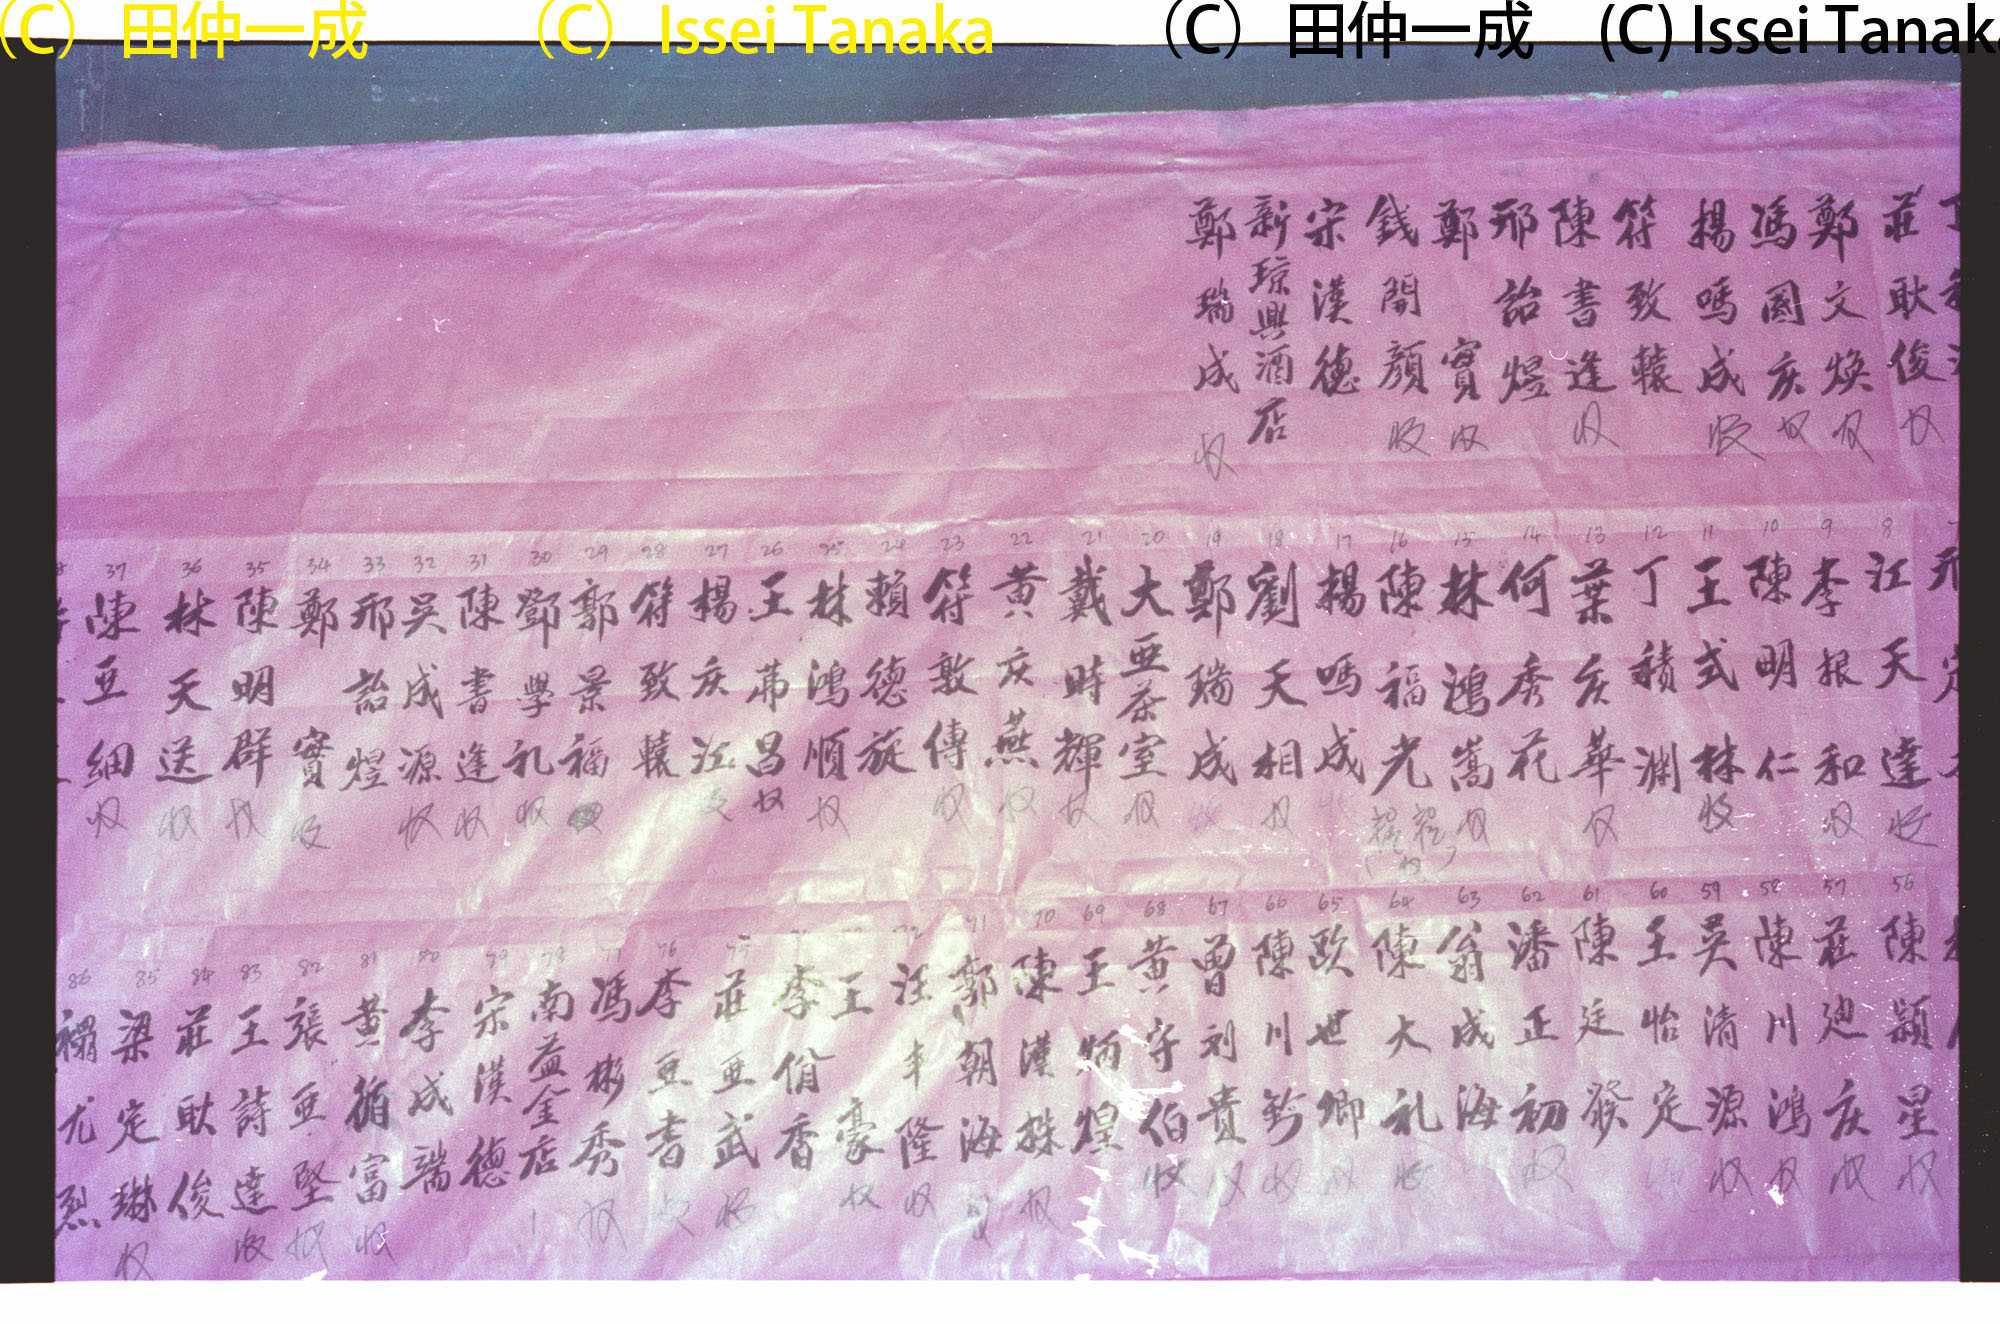 (C) 田仲一成 (C) Issei Tanaka (C) 田仲一成 (C) Issei Tanaka
莊耿俊 收
鄭文煥 收
馮國庆 收
楊嗎成 收
符致轅
陳書逢 收
邢詒煜
鄭實 收
錢開顏 收
宋漢德
新琼興酒店
鄭瑞成 收
8 江天達 收
9 李根和 收
10 陳明仁
11 王式林 收
12 丁積渊
13 葉庆華 收
14 何秀花
15 林鴻嵩 收
16 陳福光
17 楊嗎成 收
18 劉天相 收
19 鄭瑞成 收
20 大亚茶室 收
21 戴時輝 收
22 黄庆燕 收
23 符敦傳 收
24 賴德旋
25 林鴻順 收
26 王弗昌 收
27 楊庆江
28 符致轅
29 郭景福
30 鄧學礼 收
31 陳書逢 收
32 吳成源 收
33 邢詒煜
34 鄭實 收
35 陳明群 收
36 林天送 收
37 陳亚細 收
56 陳穎星 收
57 莊廸庆 收
58 陳川鴻 收
59 吳清源 收
60 王怡定
61 陳廷發
62 潘正初 收
63 翁成海
64 陳大礼 收
65 欧世卿 收
66 陳川鈴 收
67 曾刘貴 收
68 黄守伯 收
69 王炳煌
70 陳漢株 收
71 郭朝海
72 汪丰隆 收
王豪 收
李俏香
75 莊亚武 收
76 李亚書
77 馮彬秀 收
78 南益金店
79 宋漢德
80 李成端
81 黄循富 收
82 張亚堅 收
83 王詩達 收
84 莊耿俊
85 梁定琳 收
86 禤尤烈